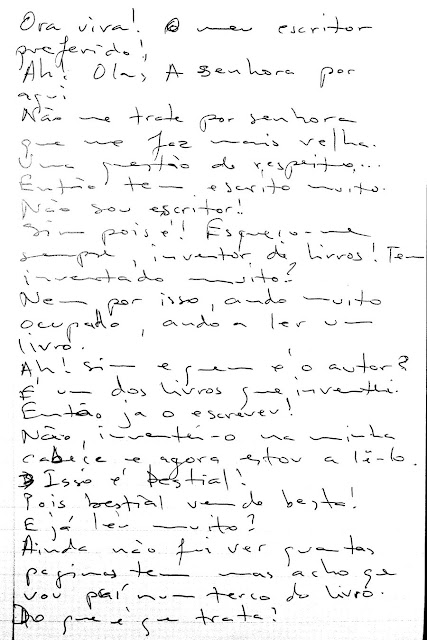 Ora viva! O meu escritor
preferido!
Ah! Olá, A senhora por
aqui
Não me trate por senhora
que me faz mais velha.
Uma questão de respeito...
Então tem escrito muito.
Não sou escritor!
Sim pois é! Esqueço-me
sempre, inventor de livros! Tem
inventado muito?
Nem por isso, ando muito
ocupado, ando a ler um
livro.
Ah! Sim e quem é o autor?
É um dos livros que inventei.
Então ja o escreveu!
Não, inventei-o na minha
cabeça e agora estou a lê-lo.
Isso é bestial!
Pois bestial vem de besta!
E já leu muito?
Ainda não fui ver quantas
paginas tem mas acho que
vou paí num terço do livro.
Do que é que trata?